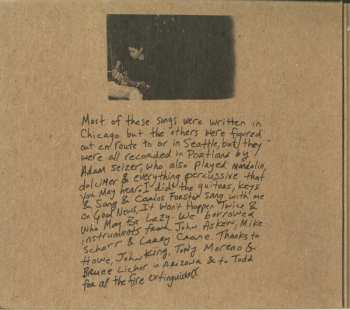 Most of these songs were written in
Chicago but the others were figured
out en route to or in Seattle, but they
were all recorded in Portland by
Adam Selzer, who also played mandolin,
dulcimer & everything percussive that
you may hear. I did the guitars, keys
& sang & Carlos Forster sang with me
on Good News, It Won't Happen Twice &
Who May Be Lazy. We borrowed
instruments from John Askew, Mike
Schorr & Laney Crane. Thanks to
Howe, John King, Tony Moreno &
Bruce Licher in Arizona & to Todd
for all the fire extinguishers